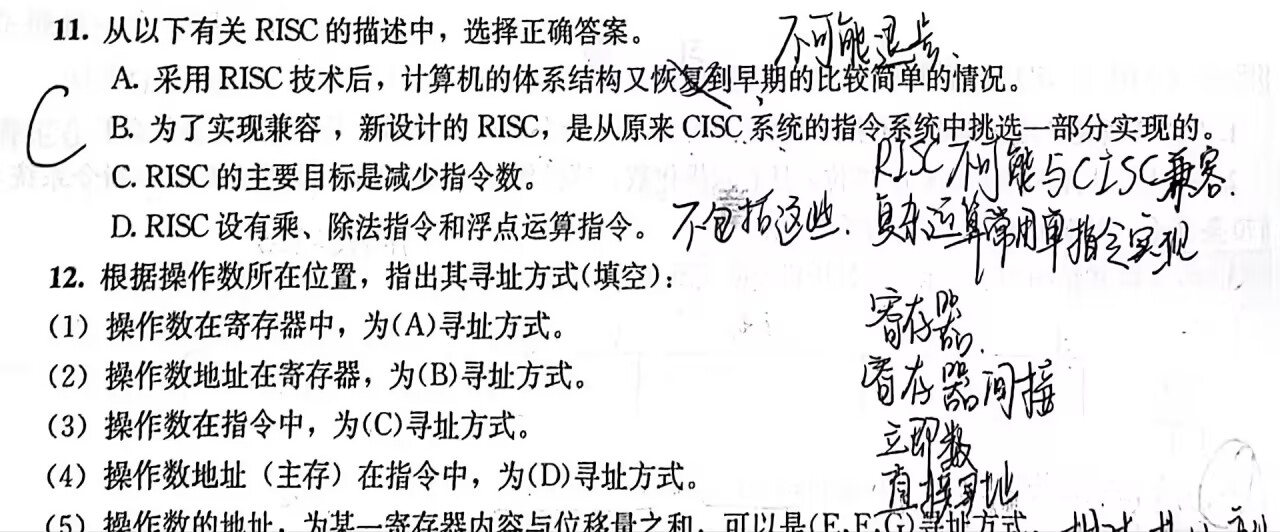 11. 从以下有关 RISC 的描述中，选择正确答案。
不可能退步.
A. 采用 RISC 技术后，计算机的体系结构又恢复到早期的比较简单的情况。
C
B. 为了实现兼容，新设计的 RISC，是从原来 CISC 系统的指令系统中挑选一部分实现的。
RISC不可能与CISC兼容.
C. RISC 的主要目标是减少指令数。
D. RISC 设有乘、除法指令和浮点运算指令。
不包括这些. 复杂运算常用单指令实现
12. 根据操作数所在位置，指出其寻址方式(填空)：
(1) 操作数在寄存器中，为(A)寻址方式。
寄存器.
(2) 操作数地址在寄存器，为(B)寻址方式。
寄存器间接
(3) 操作数在指令中，为(C)寻址方式。
立即数
(4) 操作数地址（主存）在指令中，为(D)寻址方式。
直接寻址
(5) 操作数的地址，为某一寄存器内容与位移量之和，可以是(E,F,G)寻址方式。